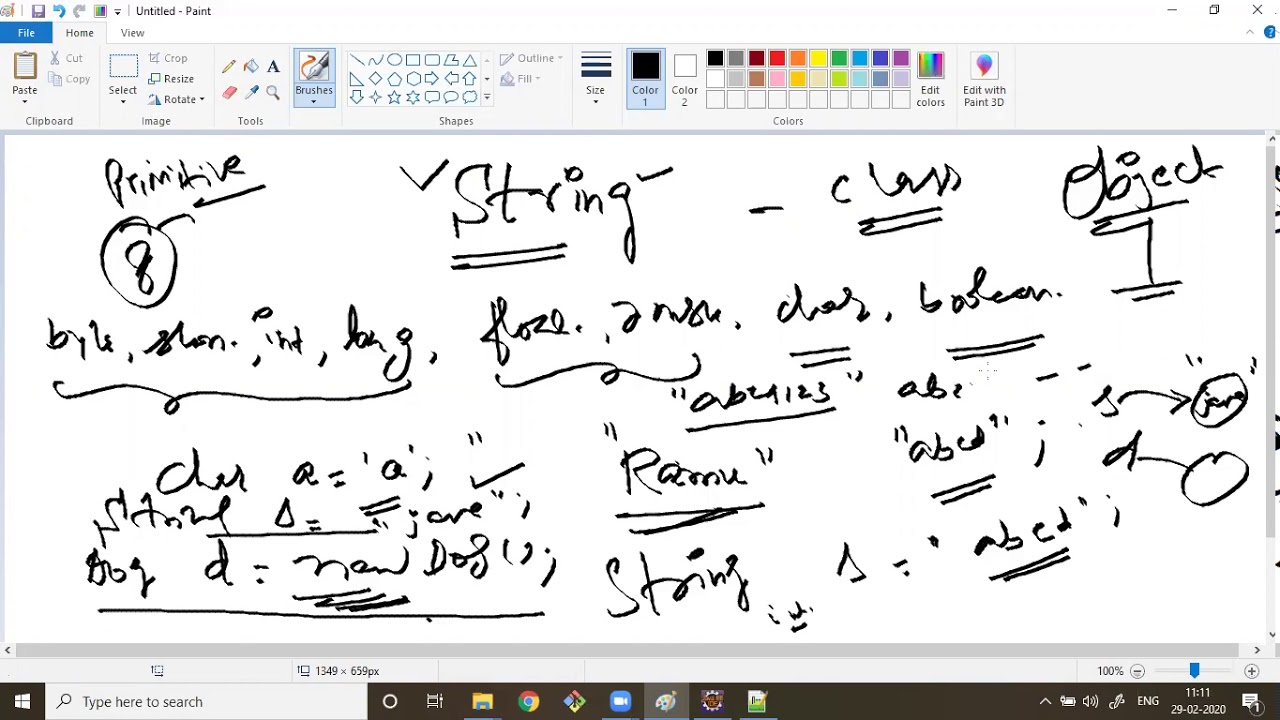 Untitled - Paint
File Home View
Paste Cut Copy Clipboard
Select Crop Resize Rotate Image
Tools
Brushes
Shapes Outline Fill
Size
Color 1 Color 2 Edit colors Edit with Paint 3D
Colors
Primitive String - class Object
8
byte, short, int, long, float, double, char, boolean.
"abc4123" abc
s "java"
char a = 'a'; "Ramu" "abcd" ;
d
String s = "java";
Dog d = new Dog(); String s = " abcd" ;
int
1349 × 659px 100%
Type here to search ENG 11:11
29-02-2020